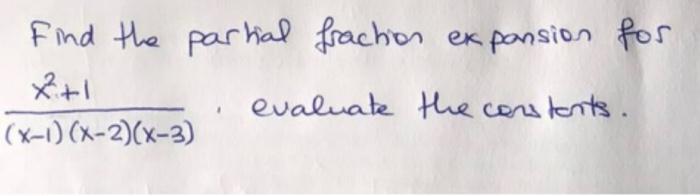 Find the partial fraction expansion for
x²+1
(x-1)(x-2)(x-3) . evaluate the constents.